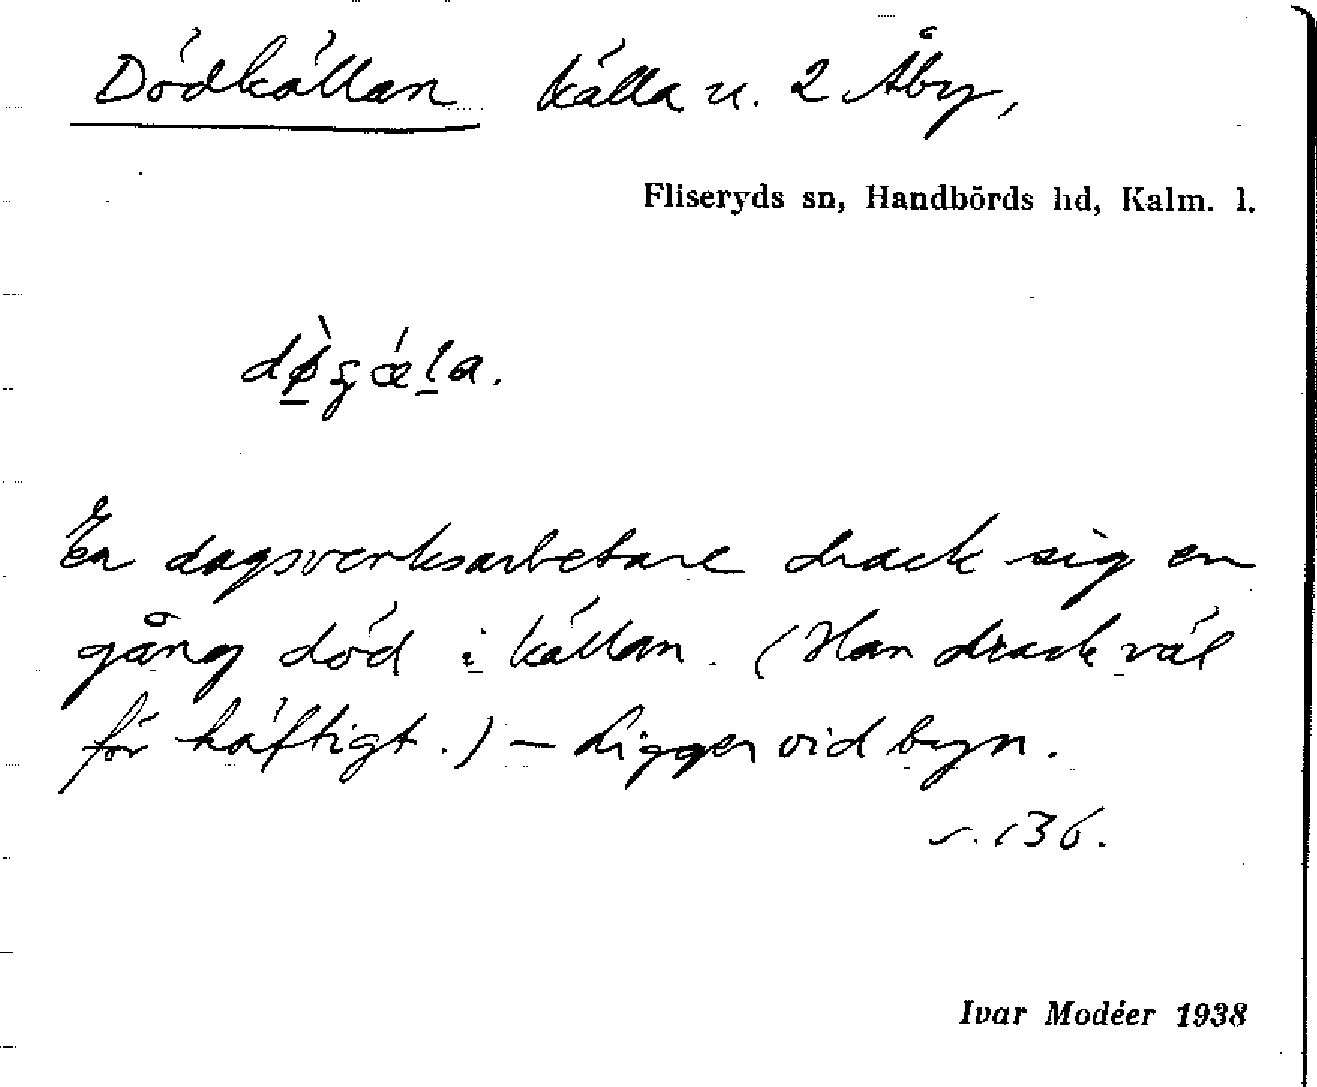 Dödkällan källa n. 2 Åby,
Fliseryds sn, Handbörds hd, Kalm. l.
En dagsverksarbetare drack sig en
gång död i källan. (Han drack väl
för häftigt.) – Ligger vid byn.
s. 136.
Ivar Modéer 1938